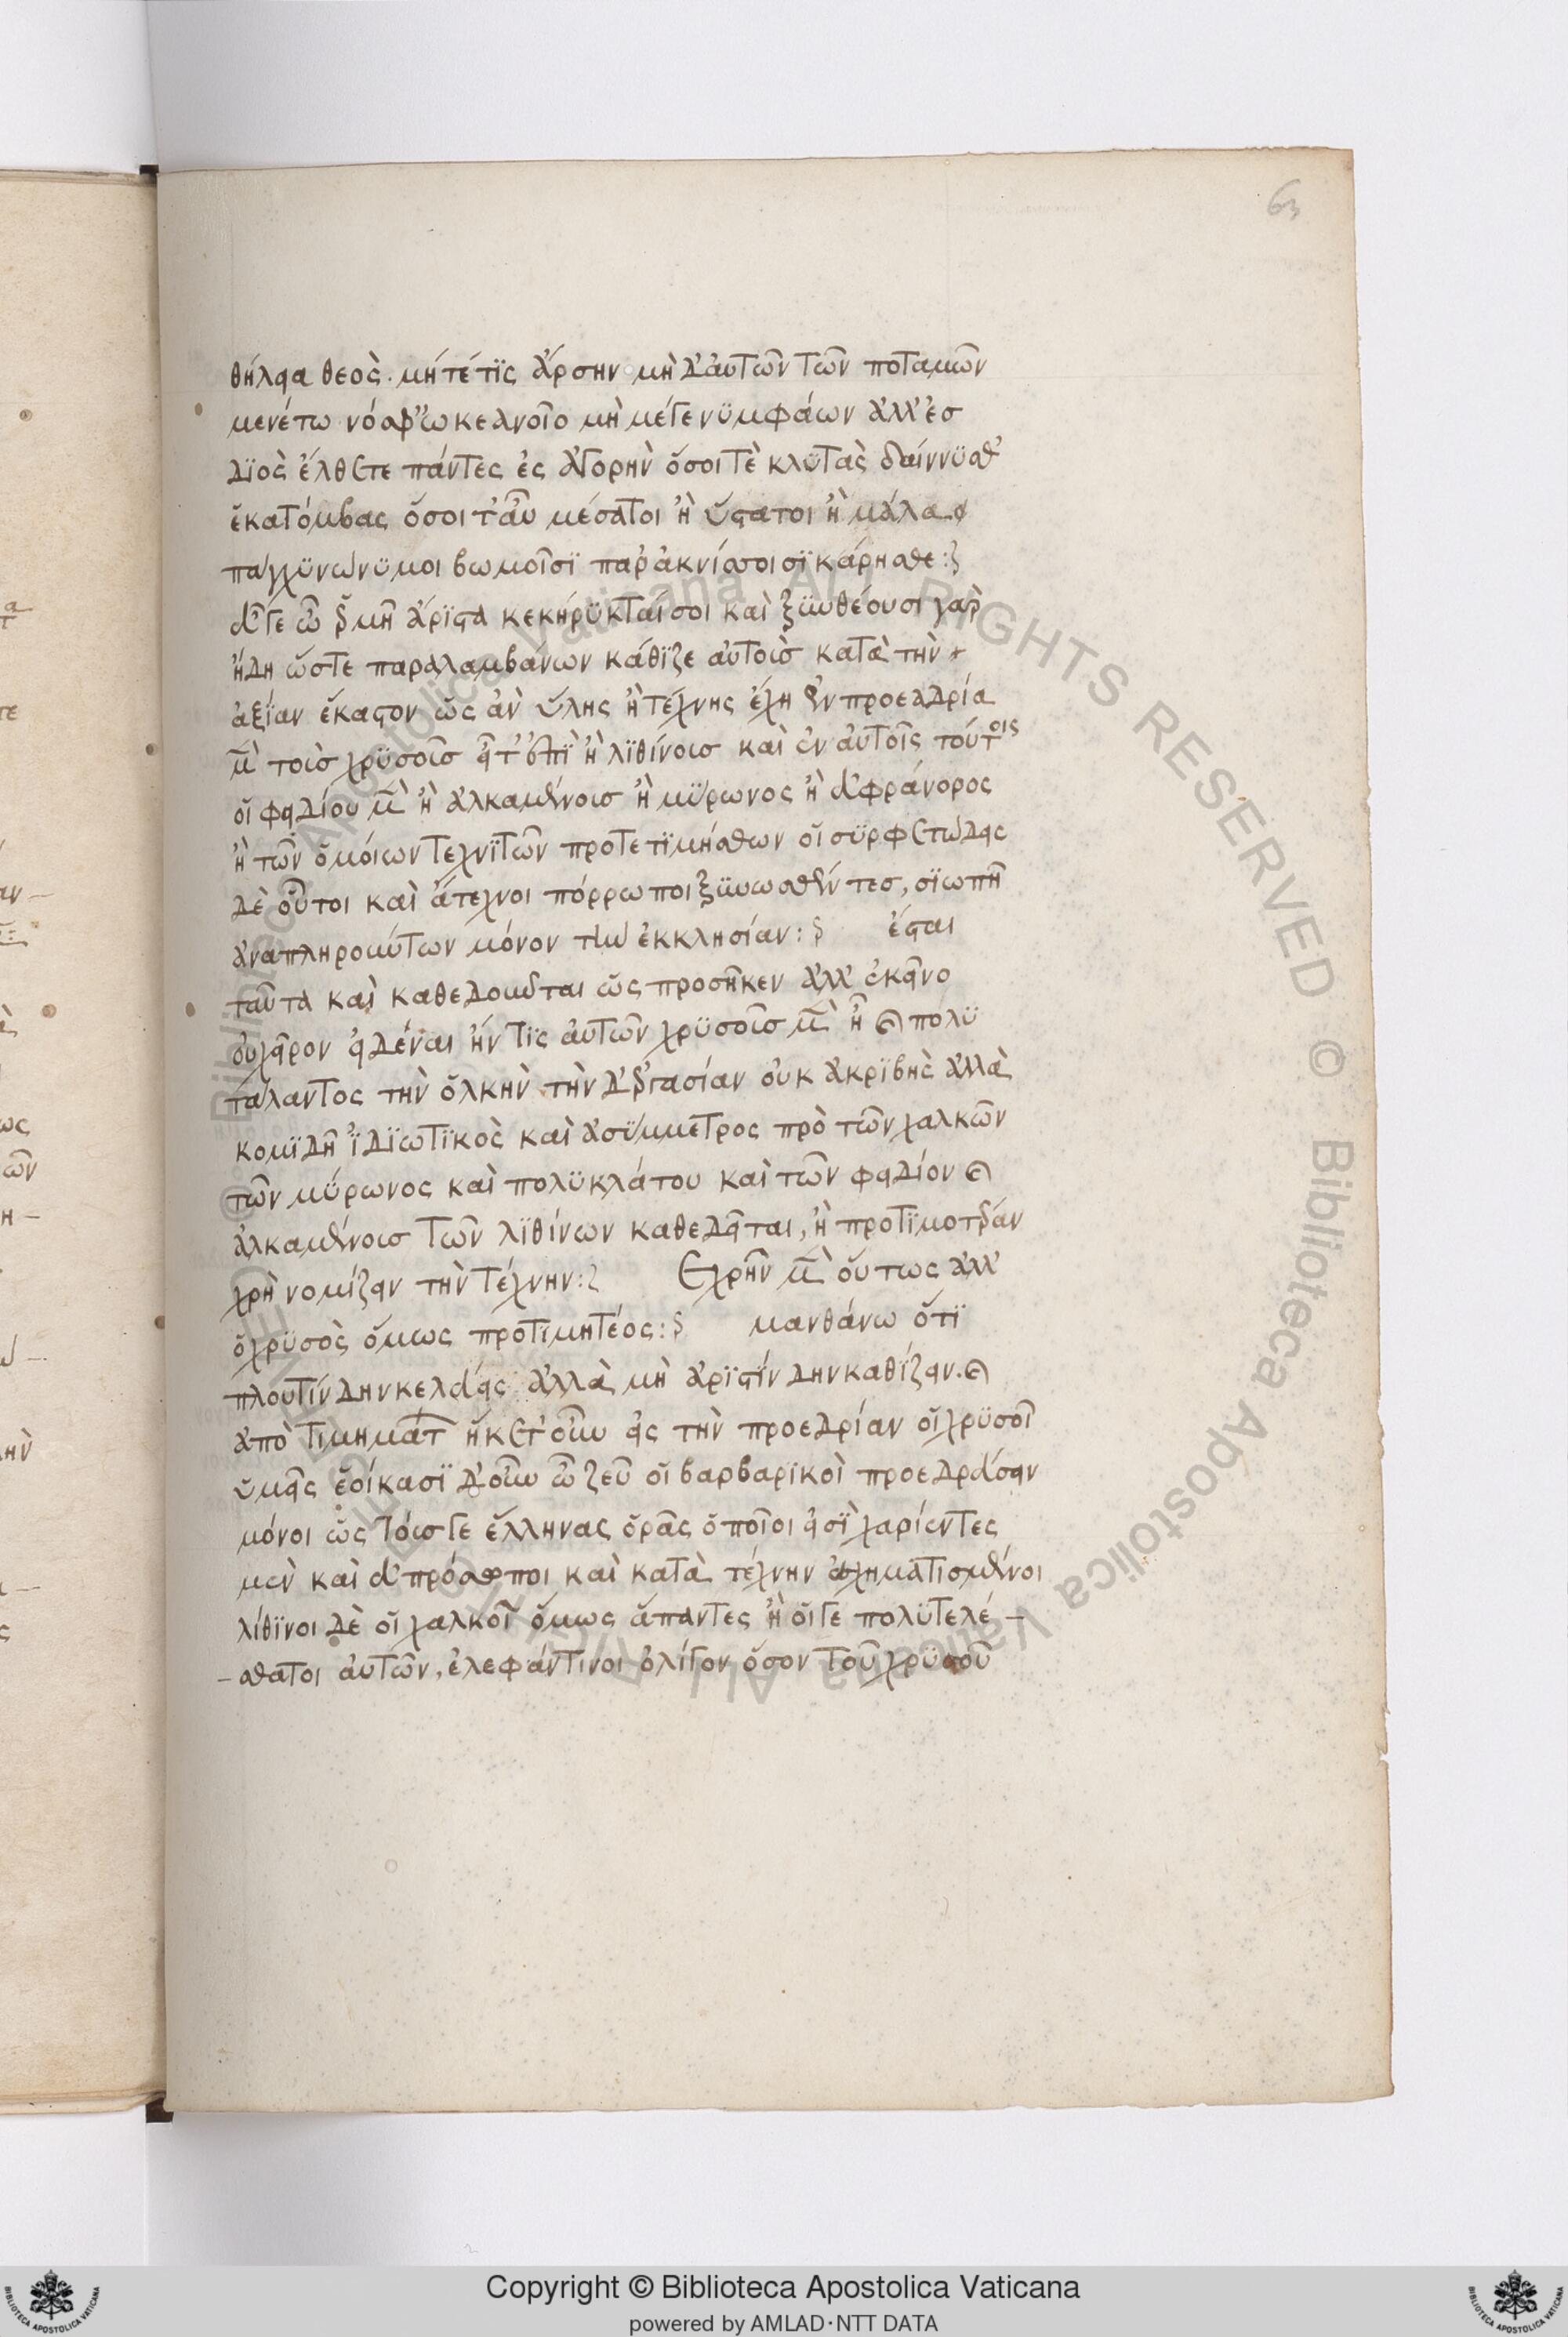 63
θήλεια θεὸς. μήτέ τϊς ἄρσην μὴ δ' ἀυτῶν τῶν ποταμῶν
μενέτω νόσφ' ὠκεανοῖο μὴ μέγε νϋμφάων ἀλλ' ἐσ
Δϊὸς ἔλθετε πάντες ἐς ἀγορὴν ὅσοι τὲ κλϋτὰς δαίννϋσθ'
ἑκατόμβας ὅσοι τ' ἀῦ μέσατοι ἢ ὕστατοι ἢ μάλα
παγχϋ νώνϋμοι βωμοῖσϊ παρ' ἀκνίσοισϊ κάρησθε:
εὖγε ὦ ἑρμῆ ἄρϊστα κεκήρϋκταί σοι καὶ ξϋνθέουσι γαρ
ἤδη ὥστε παραλαμβάνων κάθϊζε αὐτοὺσ κατὰ τὴν
ἀξΐαν ἕκαστον ὡς ἀν ὕλης ἢ τέχνης ἔχη ἐν προεδρία
μὲν τοὺσ χρϋσοῦσ εἶτ' ἐπῒ ἢ λϊθίνοισ καὶ ἐν αὐτοῖς τούτοις
οἱ φειδίου μὲν ἢ ἀλκαμένοισ ἢ μϋρωνος ἢ εὐφράνορος
ἢ τῶν ὁμόιων τεχνϊτῶν προτετϊμήσθων οἱ σϋρφετώδεις
δὲ οὗτοι καὶ ἄτεχνοι πόρρω ποι ξϋνωσθέντεσ, σϊωπῆ
ἀναπληρούντων μόνον τὴν ἐκκλησίαν: ἔσται
ταῦτα καὶ καθεδοῦνται ὡς προσῆκεν ἀλλ' ἐκεῖνο
οὐ χεῖρον εἰδέναι ἤν τϊς ἀυτῶν χρϋσοῦσ μὲν ἦ καὶ πολϋ
τάλαντος τὴν ὁλκὴν τὴν δ' ἐργασίαν οὐκ ἀκρϊβὴς ἀλλὰ
κομϊδῆ ἰδϊωτϊκὸς καὶ ἀσϋμμετρος πρὸ τῶν χαλκῶν
τῶν μϋρωνος καὶ πολϋκλείτου καὶ τῶν φειδίον καὶ
ἀλκαμένοισ τῶν λϊθίνων καθεδεῖται, ἢ προτϊμοτέραν
χρὴ νομίζειν τὴν τέχνην: Ἐχρῆν μὲν οὕτως ἀλλ'
ὁ χρϋσὸς ὅμως προτιμητέος: μανθάνω ὅτϊ
πλουτίνδην κελεύεις ἀλλὰ μὴ ἀρϊστΐνδην καθίζειν. καὶ
ἀπὸ τιμημάτων ἥκετ' οὖν εἰς τὴν προεδρίαν οἱ χρϋσοῖ
ὑμεῖς ἐοίκασϊ δ' οὖν ὦ ζεῦ οἱ βαρβαρϊκοὶ προεδρεύσειν
μόνοι ὡς τούσγε ἕλληνας ὁρᾶς ὁποῖοι εἰσῒ χαρίεντες
μὲν καὶ εὐπρόσωποι καὶ κατὰ τέχνην ἐσχηματισμένοι
λίθϊνοι δὲ οἱ χαλκοῖ ὅμως ἅπαντες ἢ οἵγε πολϋτελέ–
–σθατοι ἀυτῶν, ἐλεφάντινοι ὀλίγον ὅσον τοῦ χρϋσοῦ
Copyright © Biblioteca Apostolica Vaticana
powered by AMLAD·NTT DATA